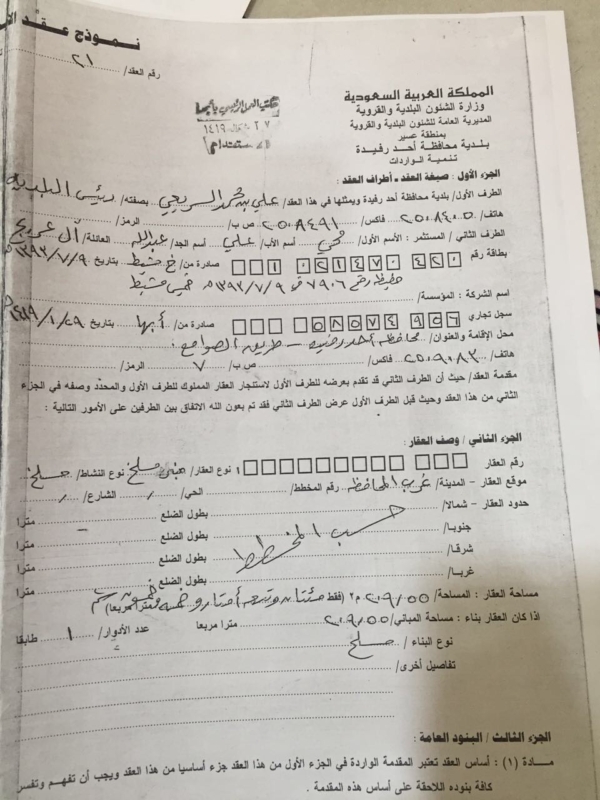 نموذج عقد الإ
رقم العقد/ ٢١
المملكة العربية السعودية
وزارة الشئون البلدية والقروية
المديرية العامة للشئون البلدية والقروية
بمنطقة عسير
بلدية محافظة أحد رفيدة
تنمية الواردات
الجزء الأول : صيغة العقد - أطراف العقد :
الطرف الأول/ بلدية محافظة أحد رفيدة ويمثلها في هذا العقد/ علي بن محمد السريحي بصفته/ رئيس البلدية
هاتف/ ٢٥٠٨٤٠٥ فاكس/ ٢٥٠٨٤٩١ ص ب/ الرمز/
الطرف الثاني / المستثمر : الأسم الأول/ اسم الأب/ علي اسم الجد/ عبدالله العائلة/ آل
بطاقة رقم ١٠٢١٤٧٠٤٢٠ صادرة من/ خ مشيط بتاريخ ١٣٩٣/٧/٩هـ
حفيظة رقم ٧٩٠٦ في ١٣٩٣/٧/٩هـ خميس مشيط
اسم الشركة : المؤسسة/
سجل تجاري ٥٨٥٧٤٩٥٦ صادرة من/ أبها بتاريخ ١٤١٩/١/٢٩هـ
محل الإقامة والعنوان/ محافظة أحد رفيدة - طريق :
هاتف/ ٢٥٠٩٠٨٣ فاكس/ ص ب/ ٧ الرمز/
مقدمة العقد/ حيث أن الطرف الثاني قد تقدم بعرضه للطرف الأول لاستئجار العقار المملوك للطرف الأول والمحدد وصفه في الجزء
الثاني من هذا العقد وحيث قبل الطرف الأول عرض الطرف الثاني فقد تم بعون الله الاتفاق بين الطرفين على الأمور التالية :
الجزء الثاني / وصف العقار :
رقم العقار ١ نوع العقار/ مبنى مسلخ نوع النشاط/ مسلخ
موقع العقار - المدينة/ غرب المحافظة رقم المخطط/ الحي/ / الشارع/ /
حدود العقار - شمالا/ بطول الضلع - مترا
جنوبا/ حسب المخطط بطول الضلع مترا
شرقا/ بطول الضلع مترا
غربا/ بطول الضلع مترا
مساحة العقار : المساحة/ ٢٠٩/٥٥ م٢ (فقط مئتان وتسعة أمتار و مربعا)
اذا كان العقار بناء : مساحة المباني/ ٢٠٩/٥٥ مترا مربعا عدد الأدوار/ ١ طابقا
نوع البناء / مسلخ
تفاصيل أخرى/
الجزء الثالث / البنود العامة :
مادة (١) : أساس العقد تعتبر المقدمة الواردة في الجزء الأول من هذا العقد جزء أساسيا من هذا العقد ويجب أن تفهم وتفسر
كافة بنوده اللاحقة على أساس هذه المقدمة .